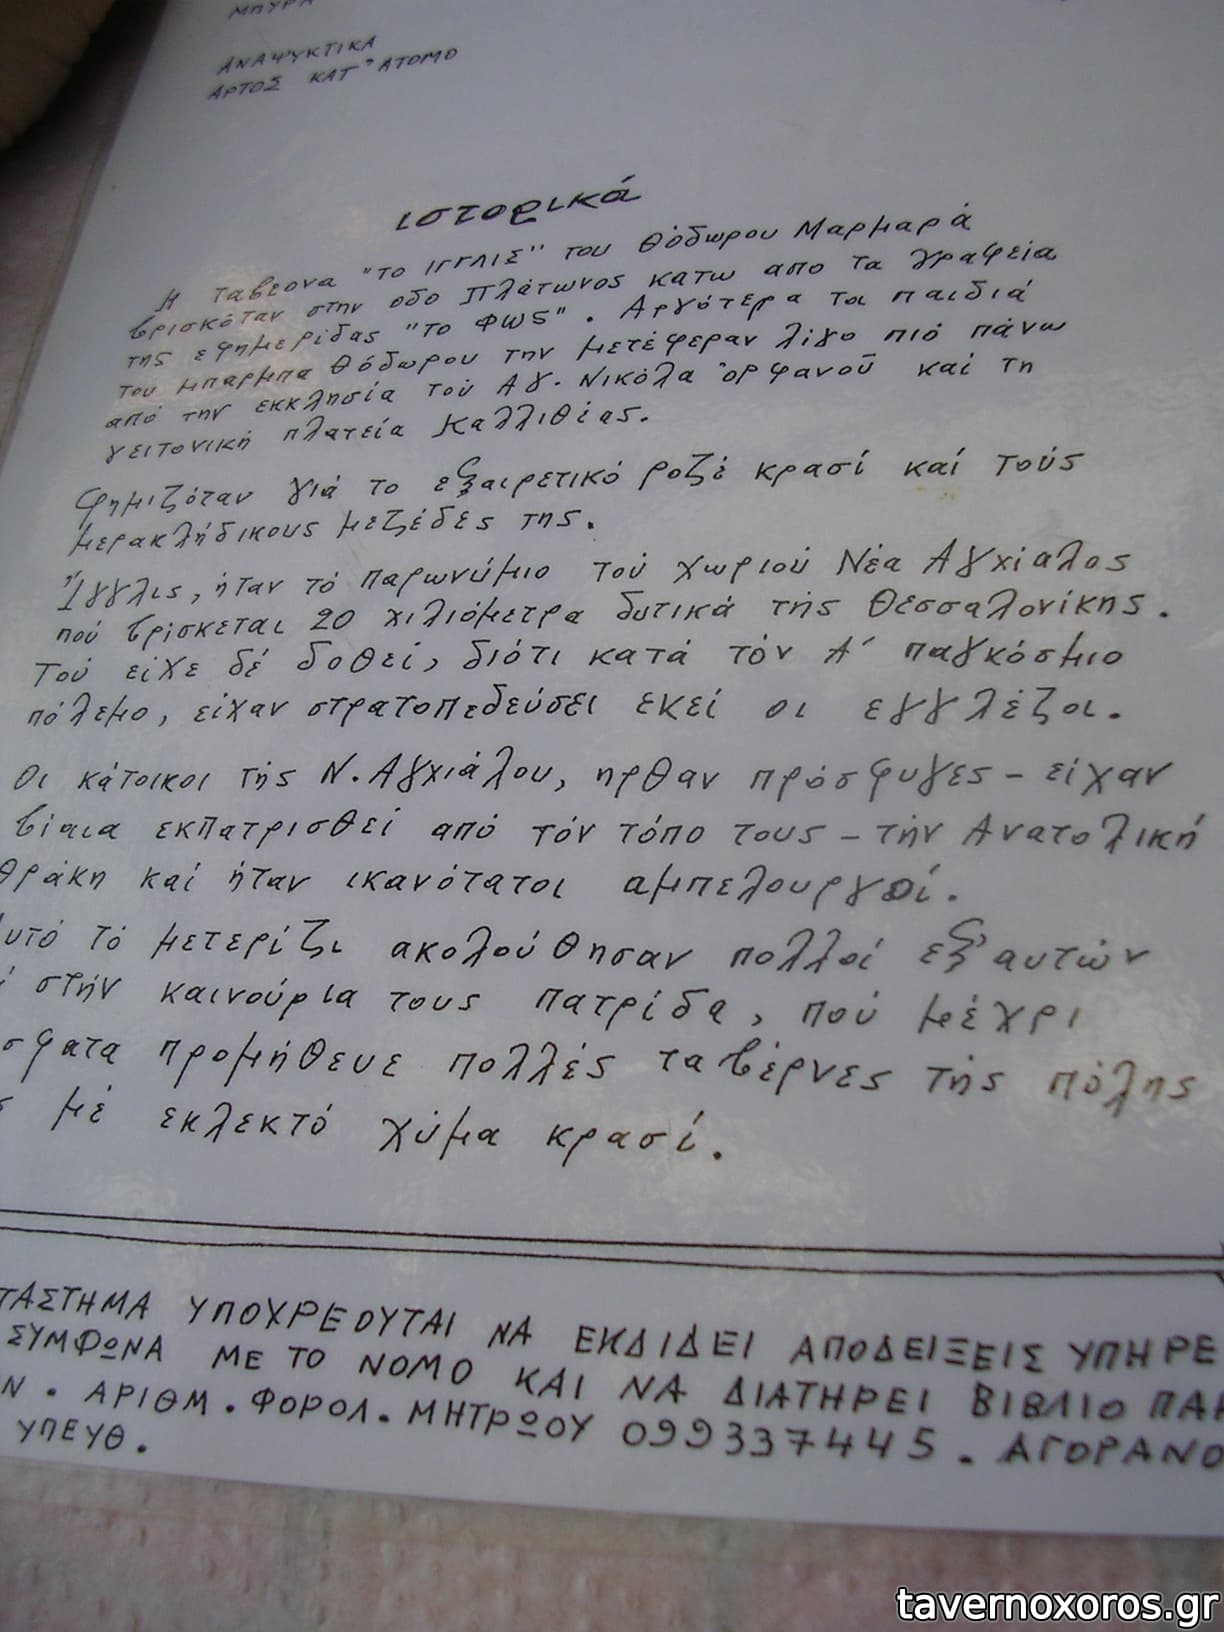 ΜΠΥΡΑ
ΑΝΑΨΥΚΤΙΚΑ
ΑΡΤΟΣ ΚΑΤ' ΑΤΟΜΟ
ιστορικά
Η ταβερνα "το ΙΓΓΛΙΣ" του Θόδωρου Μαρμαρά
βρισκόταν στην οδο Πλάτωνος κατω απο τα γραφεία
της εφημερίδας "το ΦΩΣ". Αργότερα τα παιδιά
του μπαρμπα Θόδωρου την μετέφεραν λίγο πιό πάνω
από την εκκλησία τού Αγ. Νικόλα ορφανού καί τη
γειτονική πλατεία Καλλιθέας.
Φημιζόταν γιά το εξαιρετικό ροζέ κρασί καί τούς
μερακλήδικους μεζέδες της.
Ίγγλις, ήταν τό παρωνύμιο τού χωριού Νέα Αγχίαλος
πού βρίσκεται 20 χιλιόμετρα δυτικά τής Θεσσαλονίκης.
Τού είχε δέ δοθεί, διότι κατά τόν Α' παγκόσμιο
πόλεμο, είχαν στρατοπεδεύσει εκεί οι εγγλέζοι.
Οι κάτοικοι τής Ν. Αγχιάλου, ηρθαν πρόσφυγες - είχαν
βίαια εκπατρισθεί από τόν τόπο τους - τήν Ανατολική
Θράκη καί ήταν ικανότατοι αμπελουργοί.
υτό τό μετερίζι ακολούθησαν πολλοί εξ' αυτών
στήν καινούρια τους πατρίδα, πού μέχρι
σφατα προμήθευε πολλές ταβέρνες τής πόλης
ς μέ εκλεκτό χύμα κρασί.
ΤΑΣΤΗΜΑ ΥΠΟΧΡΕΟΥΤΑΙ ΝΑ ΕΚΔΙΔΕΙ ΑΠΟΔΕΙΞΕΙΣ ΥΠΗΡΕ
ΣΥΜΦΩΝΑ ΜΕ ΤΟ ΝΟΜΟ ΚΑΙ ΝΑ ΔΙΑΤΗΡΕΙ ΒΙΒΛΙΟ ΠΑΡ
Ν. ΑΡΙΘΜ. ΦΟΡΟΛ. ΜΗΤΡΩΟΥ 099337445. ΑΓΟΡΑΝΟ
ΥΠΕΥΘ.
tavernoxoros.gr